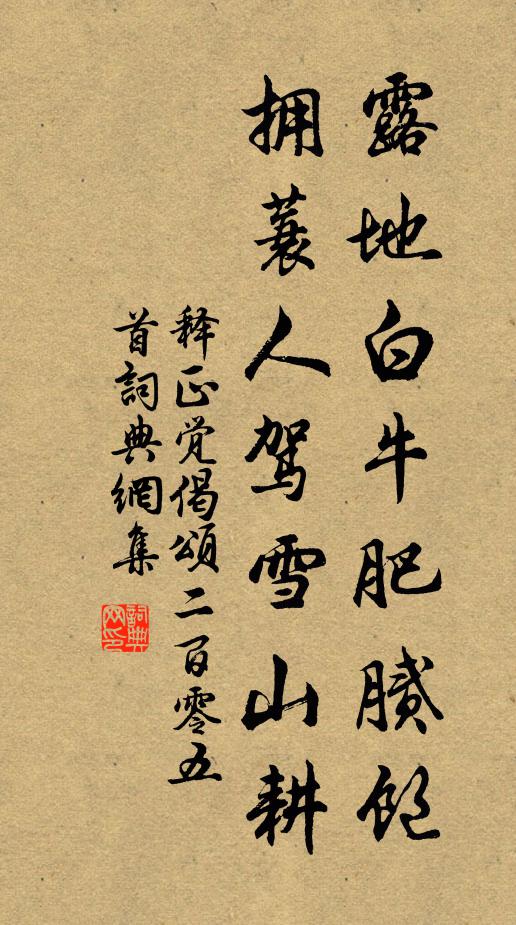 露地白牛肥膩飽
拥蓑人駕雪山耕
释正觉偈頌二百零五
首詞典網集
詞典
网印